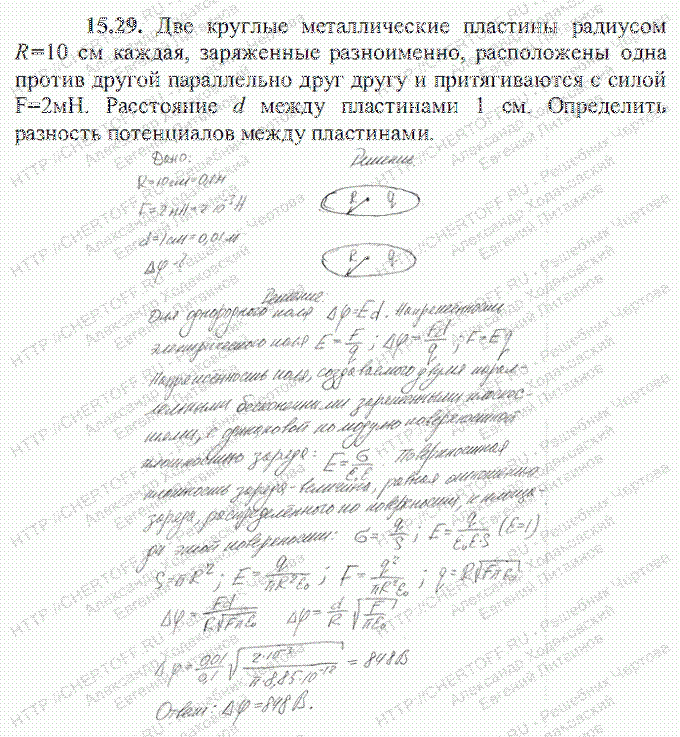 15.29. Две круглые металлические пластины радиусом
R=10 см каждая, заряженные разноименно, расположены одна
против другой параллельно друг другу и притягиваются с силой
F=2мН. Расстояние d между пластинами 1 см. Определить
разность потенциалов между пластинами.
Дано: Решение
R=10см=0,1м
F=2мН=2·10⁻³Н
d=1см=0,01м
Δφ-?
R q
R q
Решение
Для однородного поля Δφ=Ed. Напряженность
электрического поля E=F/q; Δφ=Fd/q; F=Eq
Напряженность поля, создаваемого двумя парал-
лельными бесконечными заряженными плоскос-
тями, с одинаковой по модулю поверхностной
плотностью заряда: E=σ/ε₀ε. Поверхностная
плотность заряда - величина, равная отношению
заряда, распределённого по поверхности, к площа-
ди этой поверхности: σ=q/S; E=q/ε₀ε·S (ε=1)
S=πR²; E=q/πR²ε₀; F=q²/πR²ε₀; q=R√Fπε₀
Δφ=Fd/R√Fπε₀ Δφ=d/R √F/πε₀
Δφ=0,01/0,1 √2·10⁻³/π·8,85·10⁻¹² = 848В
Ответ: Δφ=848В.
HTTP://CHERTOFF.RU - Решебник Чертова
Александр Ходаковский
Евгений Литвинов